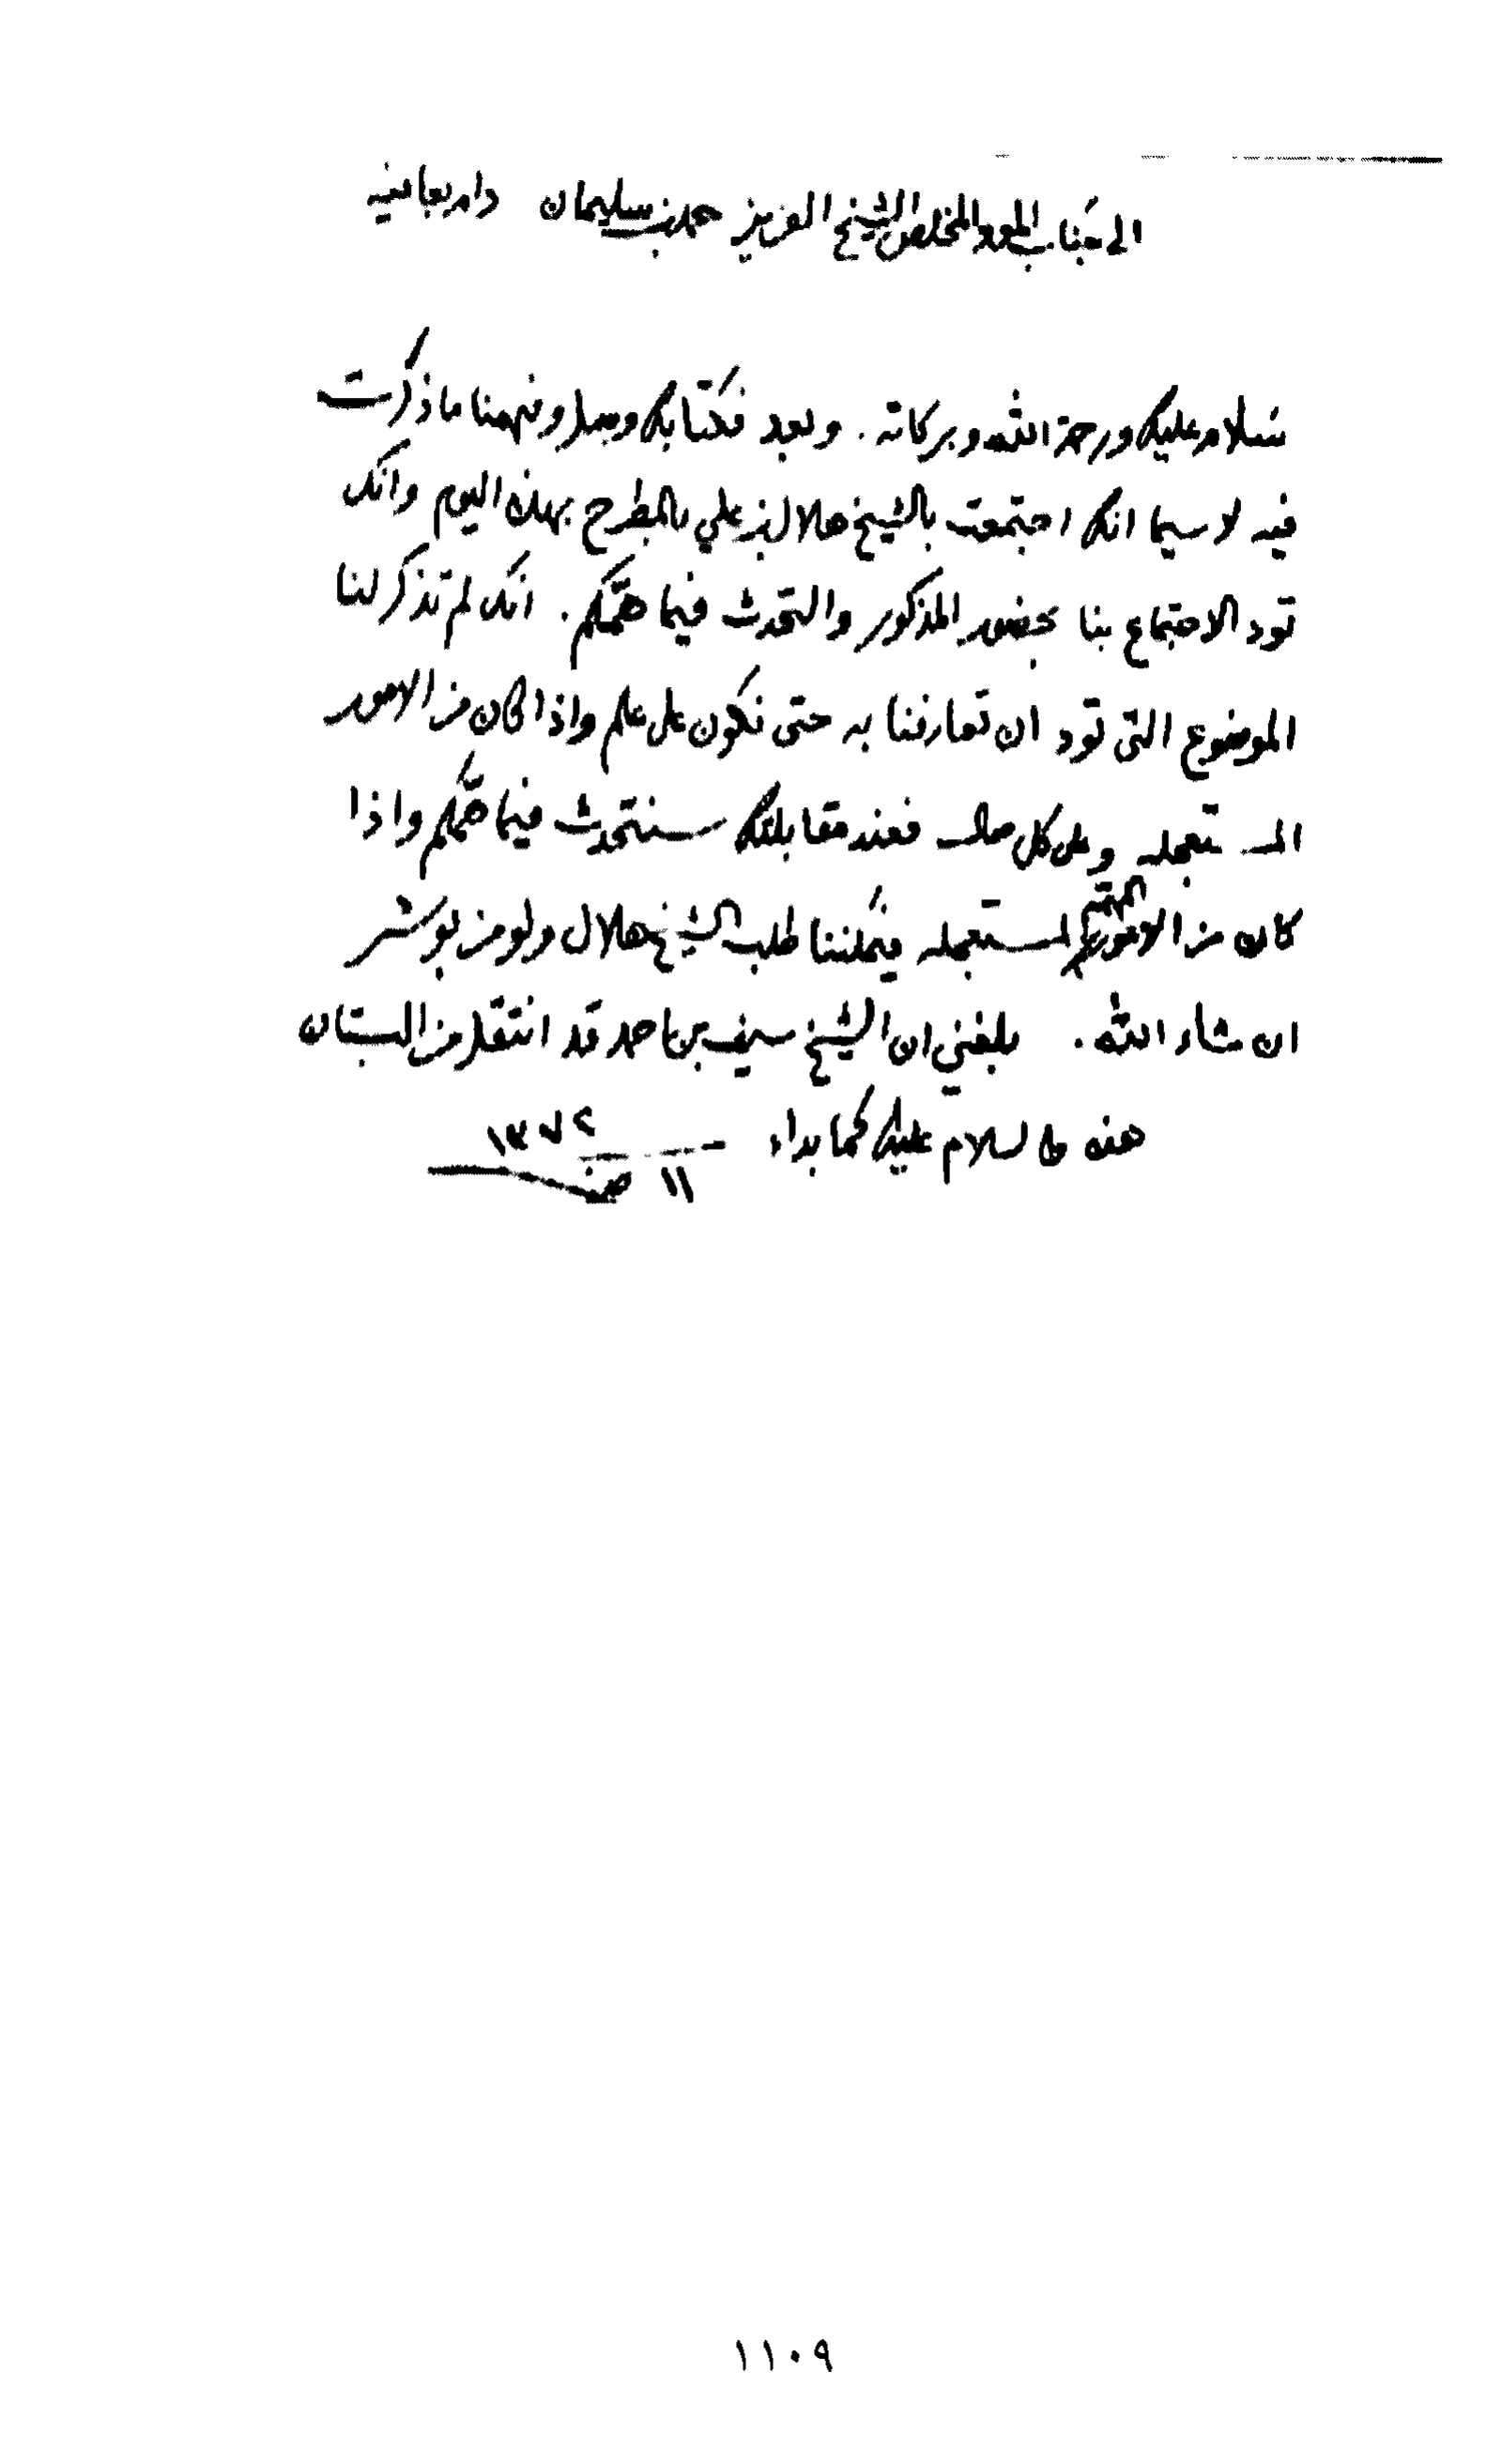 الى جناب المود المخلص الشيخ العزيز حمد بن سليمان دام بعافيه
سلام عليك ورحمة الله وبركاته . وبعد فكتابك وصل وفهمنا ما ذكرت
فيه لا سيما انك اجتمعت بالشيخ هلال بن علي بالمطرح بهذا اليوم وانك
تود الاجتماع بنا بحضور المذكور والتحدث فيما همكم . انك لم تذكر لنا
الموضوع التي تود ان تعارفنا به حتى نكون على علم واذا كان من الامور
المستعجله وعلى كل حال فعند مقابلتك سنتحدث فيما همكم واذا
كان من الامور المهمه المستعجله فيمكننا طلب الشيخ هلال ولو من بوشر
ان شاء الله . بلغني ان الشيخ سيف بن حمد قد انتقل من البستان
هذه والسلام عليك كما بداء
١١ ١٣٧٢
١١٠٩